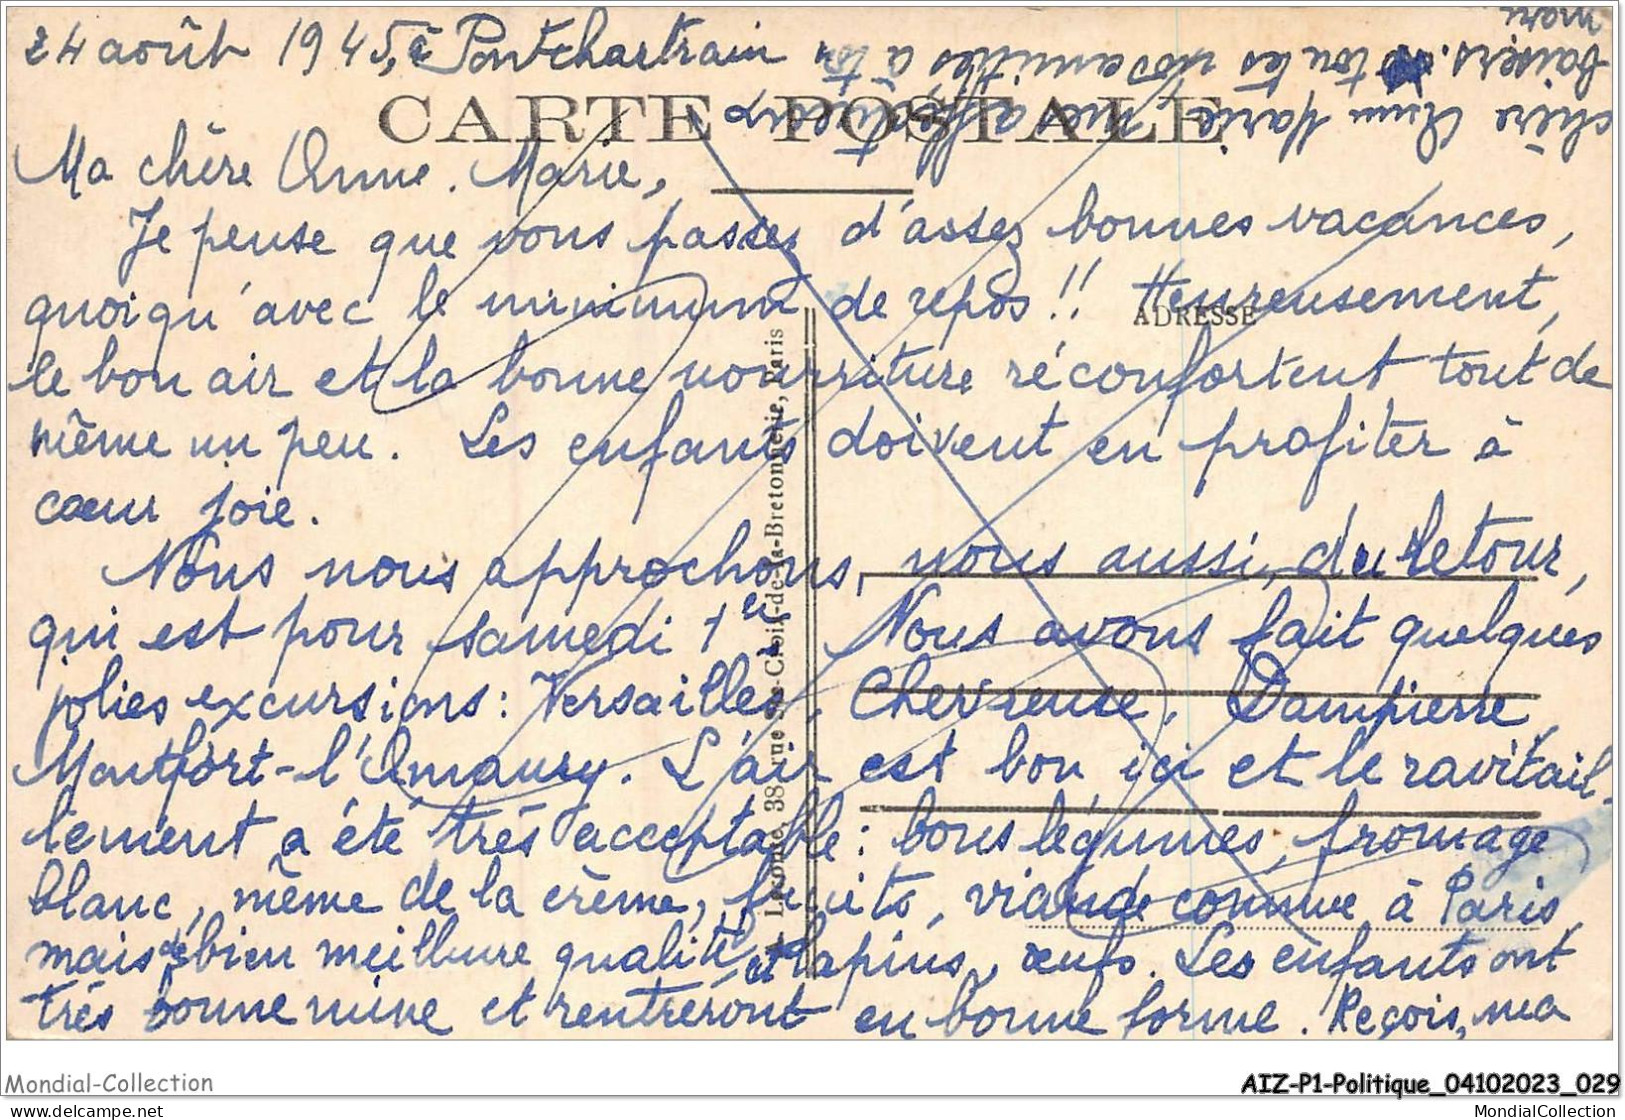 24 août 1945, à Pontchartrain
CARTE POSTALE
Ma chère Anne-Marie,
Je pense que vous passez d'assez bonnes vacances,
quoiqu'avec le minimum de repos !! Heureusement,
ADRESSE
le bon air et la bonne nourriture réconfortent tout de
même un peu. Les enfants doivent en profiter à
cœur joie.
Nous nous approchons, nous aussi, du retour,
qui est pour samedi 1er. Nous avons fait quelques
jolies excursions : Versailles, Chevreuse, Dampierre,
Montfort-l'Amaury. L'air est bon ici et le ravitail-
lement a été très acceptable : bons légumes, fromage
blanc, même de la crème, fruits, viande comme à Paris,
mais de bien meilleure qualité, et lapins, œufs. Les enfants ont
très bonne mine et rentreront en bonne forme. Reçois, ma
chère Anne Marie, mes affectueux
baisers. toutes nos amitiés à ton
mari
Leconte, 38, rue Ste-Croix-de-la-Bretonnerie, Paris
Mondial-Collection
AIZ-P1-Politique_04102023_029
https://www.delcampe.net
MondialCollection